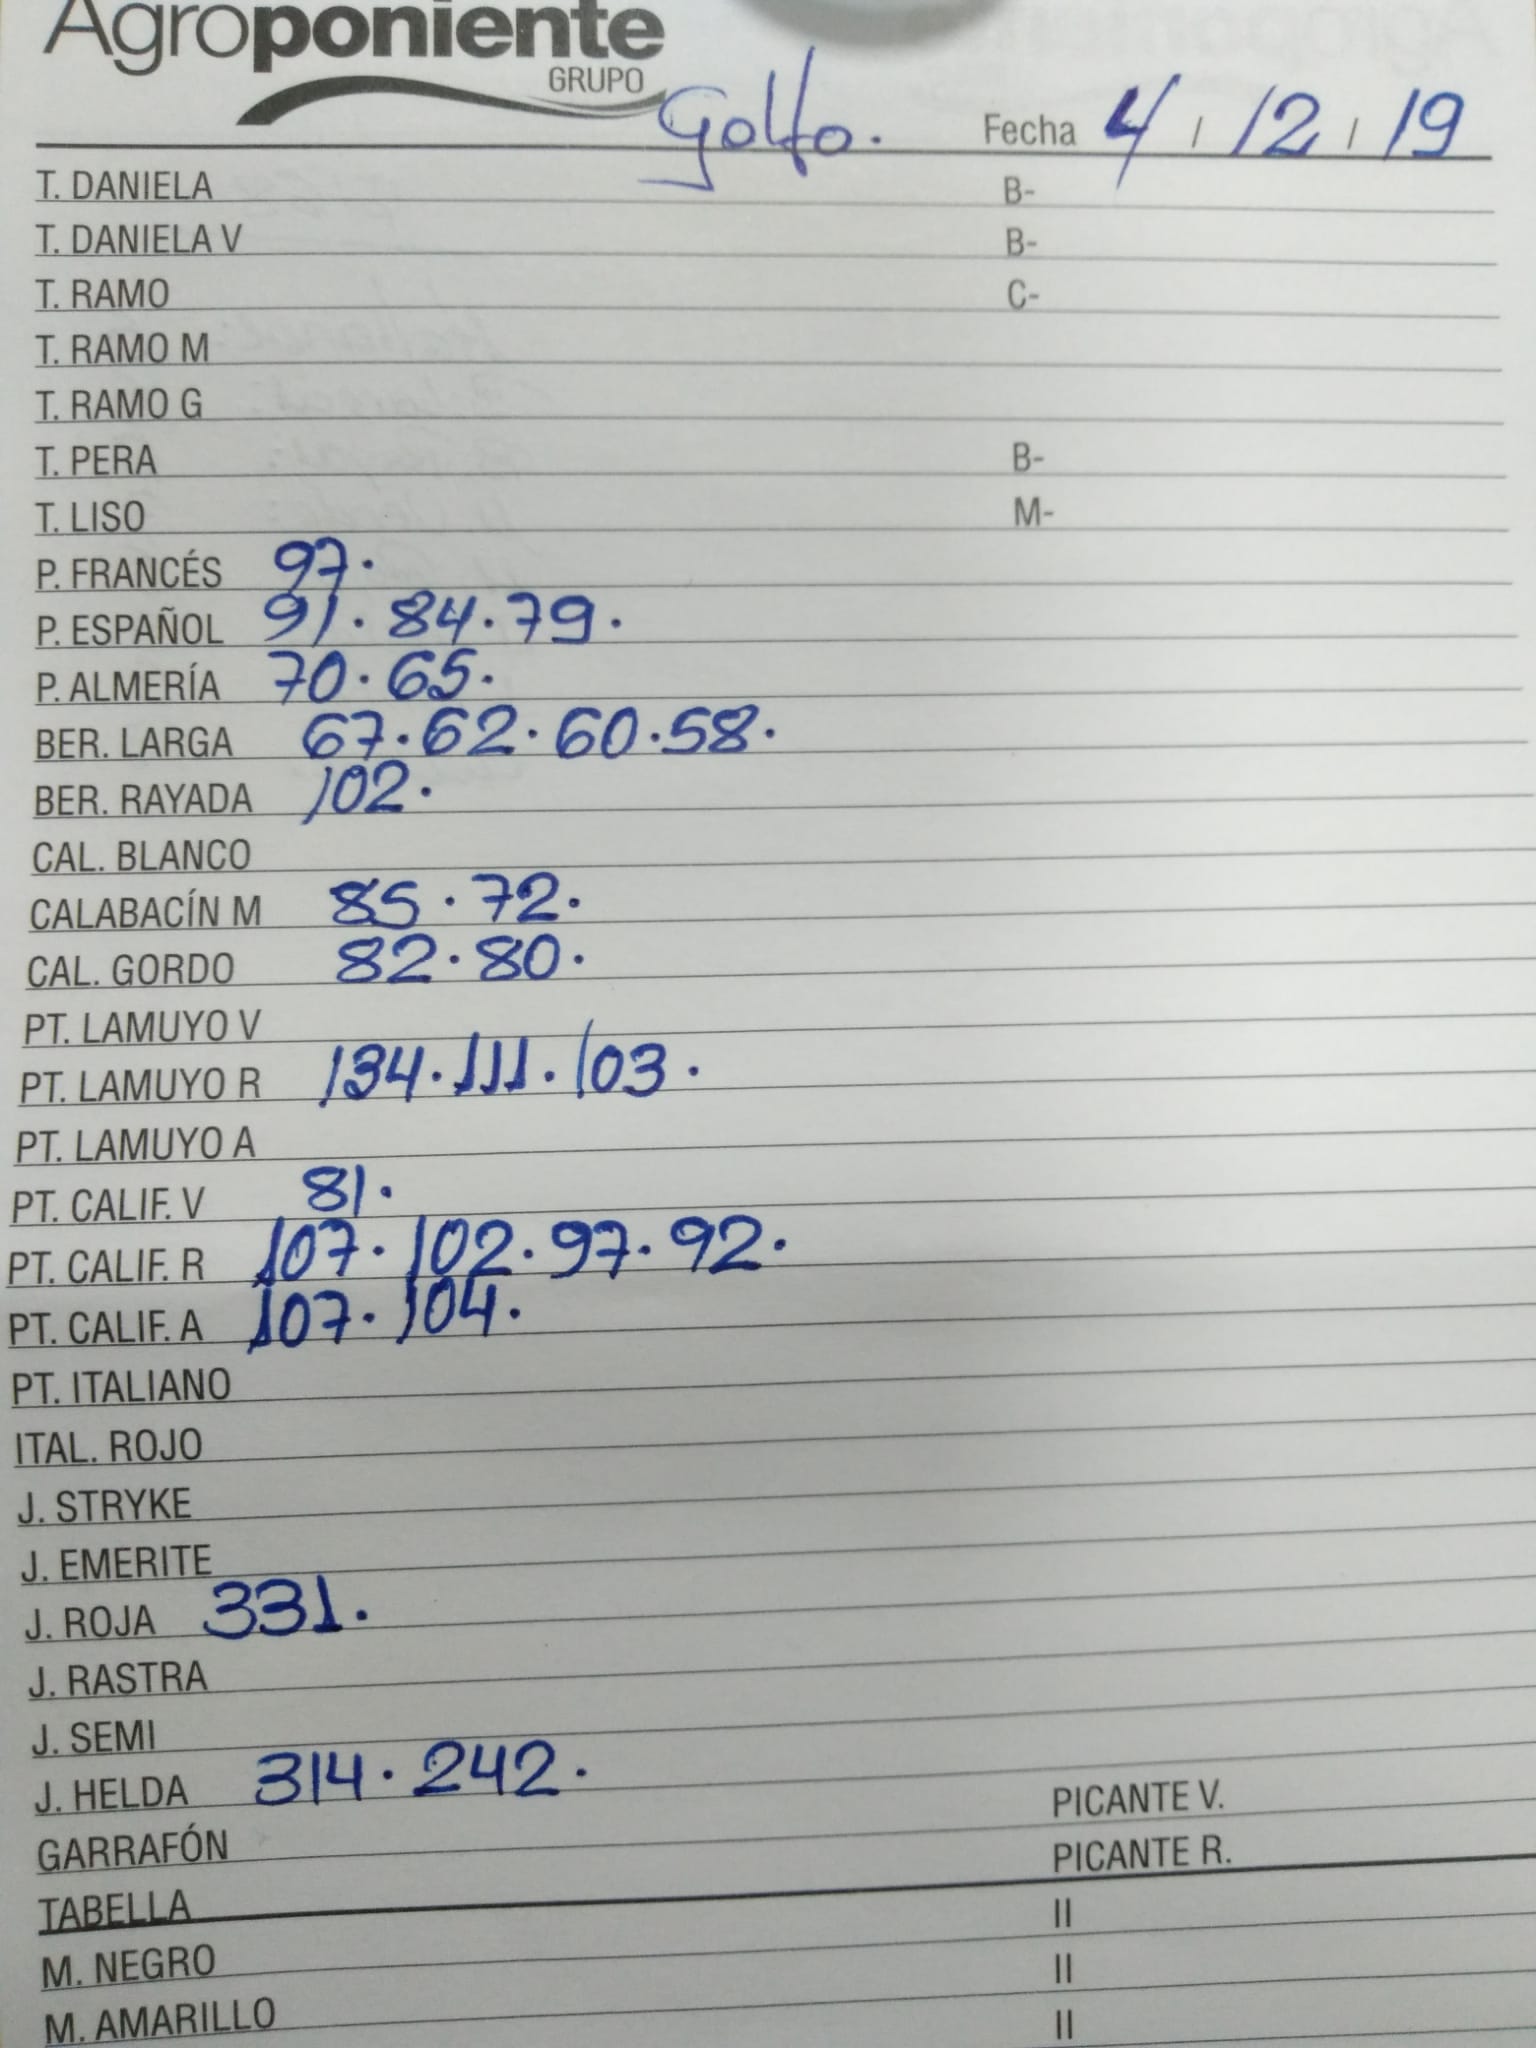 Agroponiente
GRUPO
Golfo. Fecha 4 / 12 / 19
T. DANIELA B-
T. DANIELA V B-
T. RAMO C-
T. RAMO M
T. RAMO G
T. PERA B-
T. LISO M-
P. FRANCÉS 97.
P. ESPAÑOL 91. 84. 79.
P. ALMERÍA 70. 65.
BER. LARGA 67. 62. 60. 58.
BER. RAYADA 102.
CAL. BLANCO
CALABACÍN M 85. 72.
CAL. GORDO 82. 80.
PT. LAMUYO V
PT. LAMUYO R 134. 111. 103.
PT. LAMUYO A
PT. CALIF. V 81.
PT. CALIF. R 107. 102. 97. 92.
PT. CALIF. A 107. 104.
PT. ITALIANO
ITAL. ROJO
J. STRYKE
J. EMERITE
J. ROJA 331.
J. RASTRA
J. SEMI
J. HELDA 314. 242. PICANTE V.
GARRAFÓN PICANTE R.
TABELLA II
M. NEGRO II
M. AMARILLO II